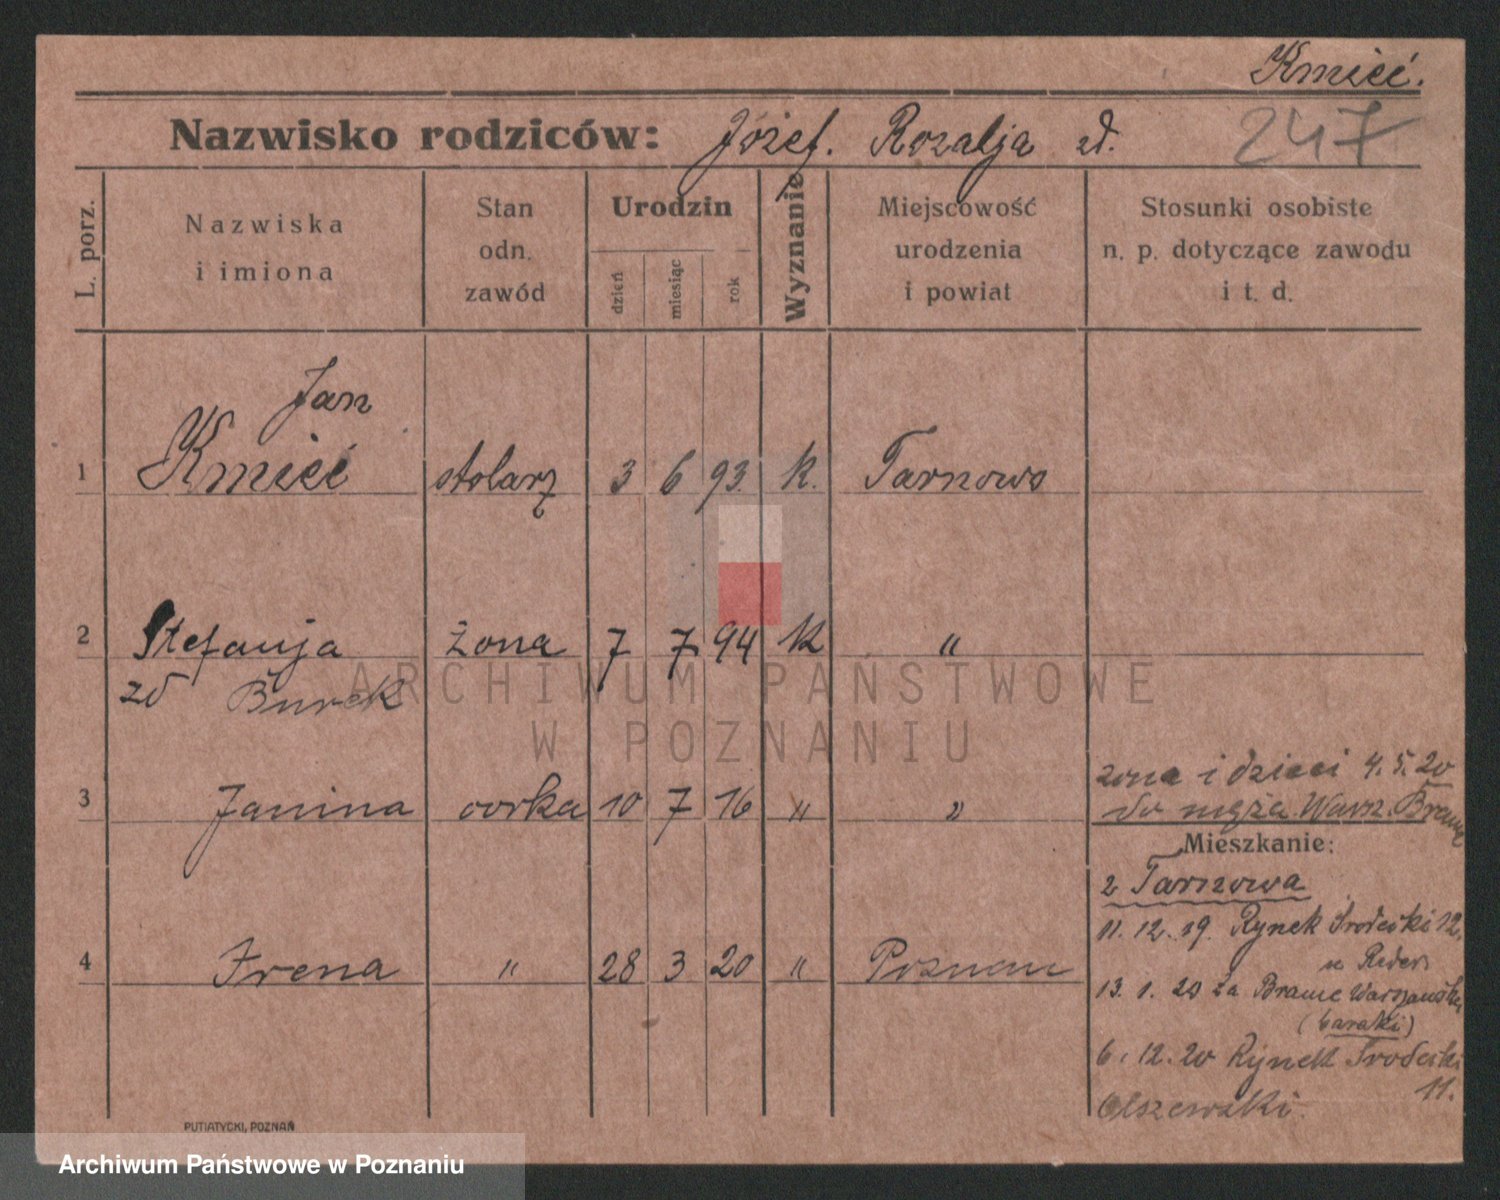 Kmieć.
Nazwisko rodziców: Józef. Rozalja zd.
247
L. porz.
Nazwiska
i imiona
Stan
odn.
zawód
Urodzin
dzień
miesiąc
rok
Wyznanie
Miejscowość
urodzenia
i powiat
Stosunki osobiste
n. p. dotyczące zawodu
i t. d.
Jan
1 Kmieć stolarz 3 6 93. k. Tarnowo
2 Stefanja żona 7 7 94 k "
zd Burek
ARCHIWUM PAŃSTWOWE
W POZNANIU
żona i dzieci 4.5.20
3 Janina córka 10 7 16 " "
do męża. Warsz. Bramę
Mieszkanie:
z Tarnowa
11. 12. 19. Rynek Środecki 12.
4 Irena " 28 3 20 " Poznań
u Reder
13. 1. 20 Za Bramę Warszawską
(baraki)
6. 12. 20 Rynek Środecki
11.
Olszewski.
PUTIATYCKI, POZNAŃ
Archiwum Państwowe w Poznaniu